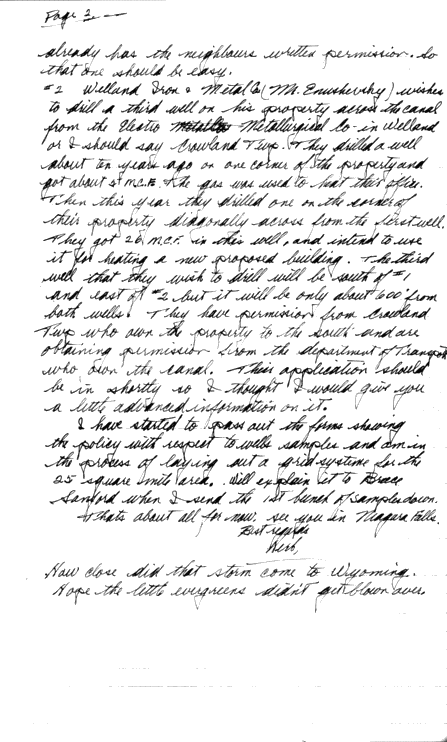 Page 3. —
already has the neighbours written permission. So
that one should be easy.
#2 Welland Iron & Metal Co (Mr. Enushevsky) wishes
to drill a third well on his property across the canal
from the Electro Metallurgical Co in Welland
or I should say Crowland Twp. They drilled a well
about ten years ago on one corner of the property and
got about 5 M.C.F. & the gas was used to heat their office.
Then this year they drilled one on the corner of
their property diagonally across from the first well.
They got 26 M.C.F. in this well, and intend to use
it for heating a new proposed building. The third
well that they wish to drill will be south of #1
and east of #2 but it will be only about 600' from
both wells. They have permission from Crowland
Twp who own the property to the south and are
obtaining permission from the department of Transport
who own the canal. This application should
be in shortly so I thought I would give you
a little advanced information on it.
I have started to pass out the forms showing
the policy with respect to wells samples and am in
the process of laying out a grid system for the
25 square mile area. Will explain it to Bruce
Sanford when I send the 1st bunch of samples down.
Thats about all for now. see you in Niagara Falls.
Best regards
How close did that storm come to Wyoming.
Hope the little evergreens didn't get blown over.